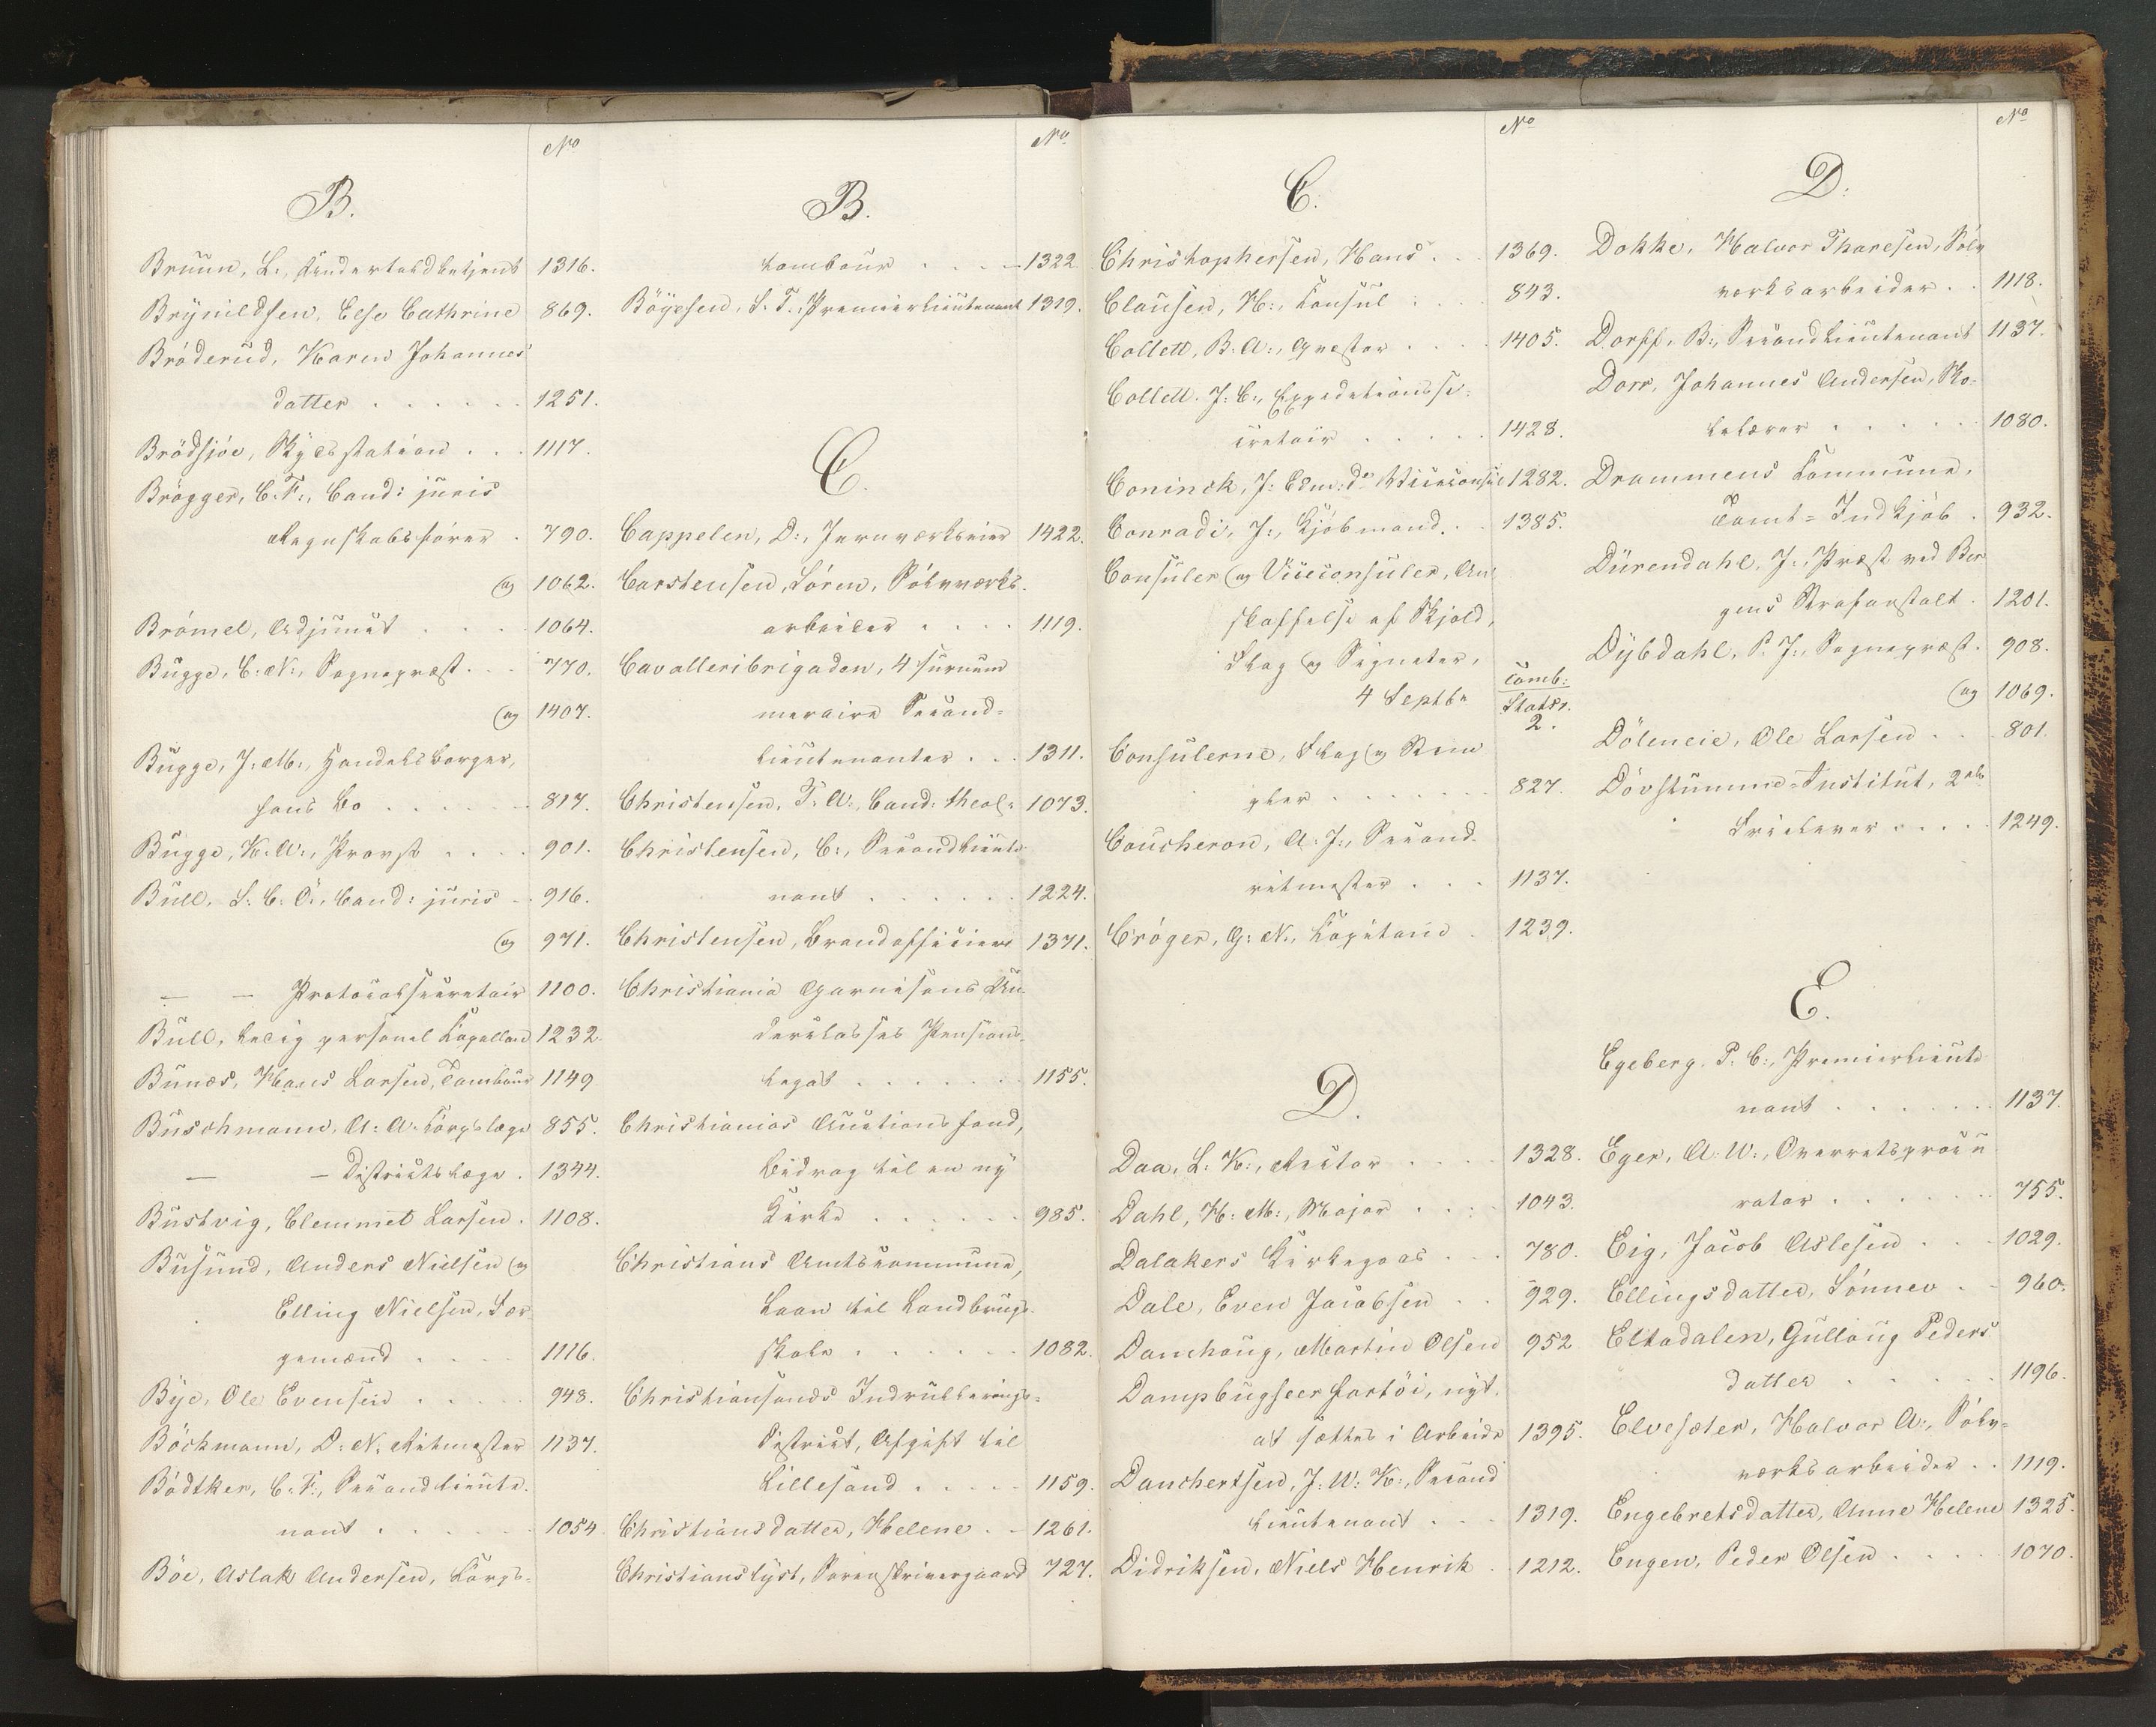 No
B.
Bruun, L., Undertoldbetjent 1316.
Brynildsen, Else Cathrine 869.
Bröderud, Karen Johannes
datter . . . . . . 1251.
Brödsjöe, Skydsstation . . . 1117.
Brögger, C. F., Cand: juris
Regnskabsförer . 790.
og 1062.
Brömel, Adjunct . . . . 1064.
Bugge, C: N:, Sognepræst . . . 770.
og 1407.
Bugge, J: M:, Handelsborger,
hans Bo . . . . . . 817.
Bugge, K: A:, Provst . . . . 901.
Bull, S: C: Ö:, Cand: juris - 916.
og 971.
— — Protocolsecretair 1100.
Bull, ledig personel Kapellan 1232.
Bunæs, Hans Larsen, Tambour 1149
Buschmann, A: A: Corpslæge 855.
— — Districtslæge . 1344.
Bustvig, Clemmet Larsen . 1108.
Busund, Anders Nielsen og
Elling Nielsen, Fær-
gemænd . . . . 1116.
Bye, Ole Evensen . . . . . 948.
Böckmann, D: N: Ritmester 1137.
Bödtker, C: F:, Secondlieute-
nant . . . . . . 1054
Böe, Aslak Andersen, Corps-
No
B.
tambour . . . . 1322
Böyesen, S. T., Premierlieutenant 1319.
C.
Cappelen, D:, Jernværkseier 1422.
Carstensen, Sören, Sölvværks-
arbeider . . . . 1119.
Cavalleribrigaden, 4 surnum
meraire Second-
lieutenanter . . . 1311.
Christensen, T: A:, Cand: theol: 1073.
Christensen, C:, Secondlieute
nant . . . . . . 1224.
Christensen, Brandofficier 1371.
Christiania Garnisons Un-
derclasses Pensions-
legat . . . . . . 1155.
Christianias Auctionsfond,
Bidrag til en ny
Kirke . . . . . . 985.
Christians Amtscommune,
Laan til Landbrugs-
skole . . . . . . 1082.
Christiansands Indrullerings-
District, Afgift til
Lillesand . . . . . 1159.
Christiansdatter, Helene . - 1261.
Christianslyst, Sorenskrivergaard 727.
No
C.
Christophersen, Hans . . . 1369.
Clausen, H:, Consul . . . 843.
Collett, B: A:, Qvestor . . . . 1405.
Collett. J: C:, Expeditionsse-
cretair . . . . . 1428.
Coninck, J: Edm: de Viceconsul 1282.
Conradi, J:, Kjöbmand . . . 1385.
Consuler og Viceconsuler, An
skaffelse af Skjold,
Flag og Signeter,
4 Septbr Comb: Statsr. 2.
Consulerne, Flag og Stem
pler . . . . . . . 827.
Coucheron, A: J:, Second-
ritmester . . . 1137.
Cröger, G: N:, Kapitain . 1239.
D.
Daa, L: K:, Rector . . . . 1328.
Dahl, H: M:, Major . . . . 1043.
Dalakers Kirkegods . . . 780.
Dale, Even Jacobsen . . 929.
Damhaug, Martin Olsen 952
Dampbugseerfartöi, nyt,
at sættes i Arbeide 1395.
Danchertsen, J: W: K:, Second
lieutenant . . . 1319.
Didriksen, Niels Henrik . 1212.
No
D:
Dokke, Halvor Tharesen, Sölv
værksarbeider . . 1118.
Dorff, B:, Secondlieutenant 1137.
Dorr, Johannes Andersen, Sko-
lelærer . . . . . 1080.
Drammens Kommune,
Tomt-Indkjöb . 932.
Dürendahl, J:, Præst ved Ber
gens Strafanstalt . 1201.
Dybdahl, P. J:, Sognepræst . 908.
og 1069.
Döleneie, Ole Larsen . . . 801.
Dövstumme-Institut, 2de
Frielever . . . . . 1249.
E.
Egeberg. P. C:, Premierlieute
nant . . . . . . 1137.
Eger, A: W:, Overretsprocu
rator . . . . . . 755.
Eig, Jacob Aslesen . . . 1029.
Ellingsdatter, Sönnev . . 960.
Eltadalen, Gullaug Peders
datter . . . . . 1196.
Elvesæter, Halvor A:, Sölv-
værksarbeider . . 1119.
Engebretsdatter, Anne Helene 1325.
Engen, Peder Olsen . . . . 1070.